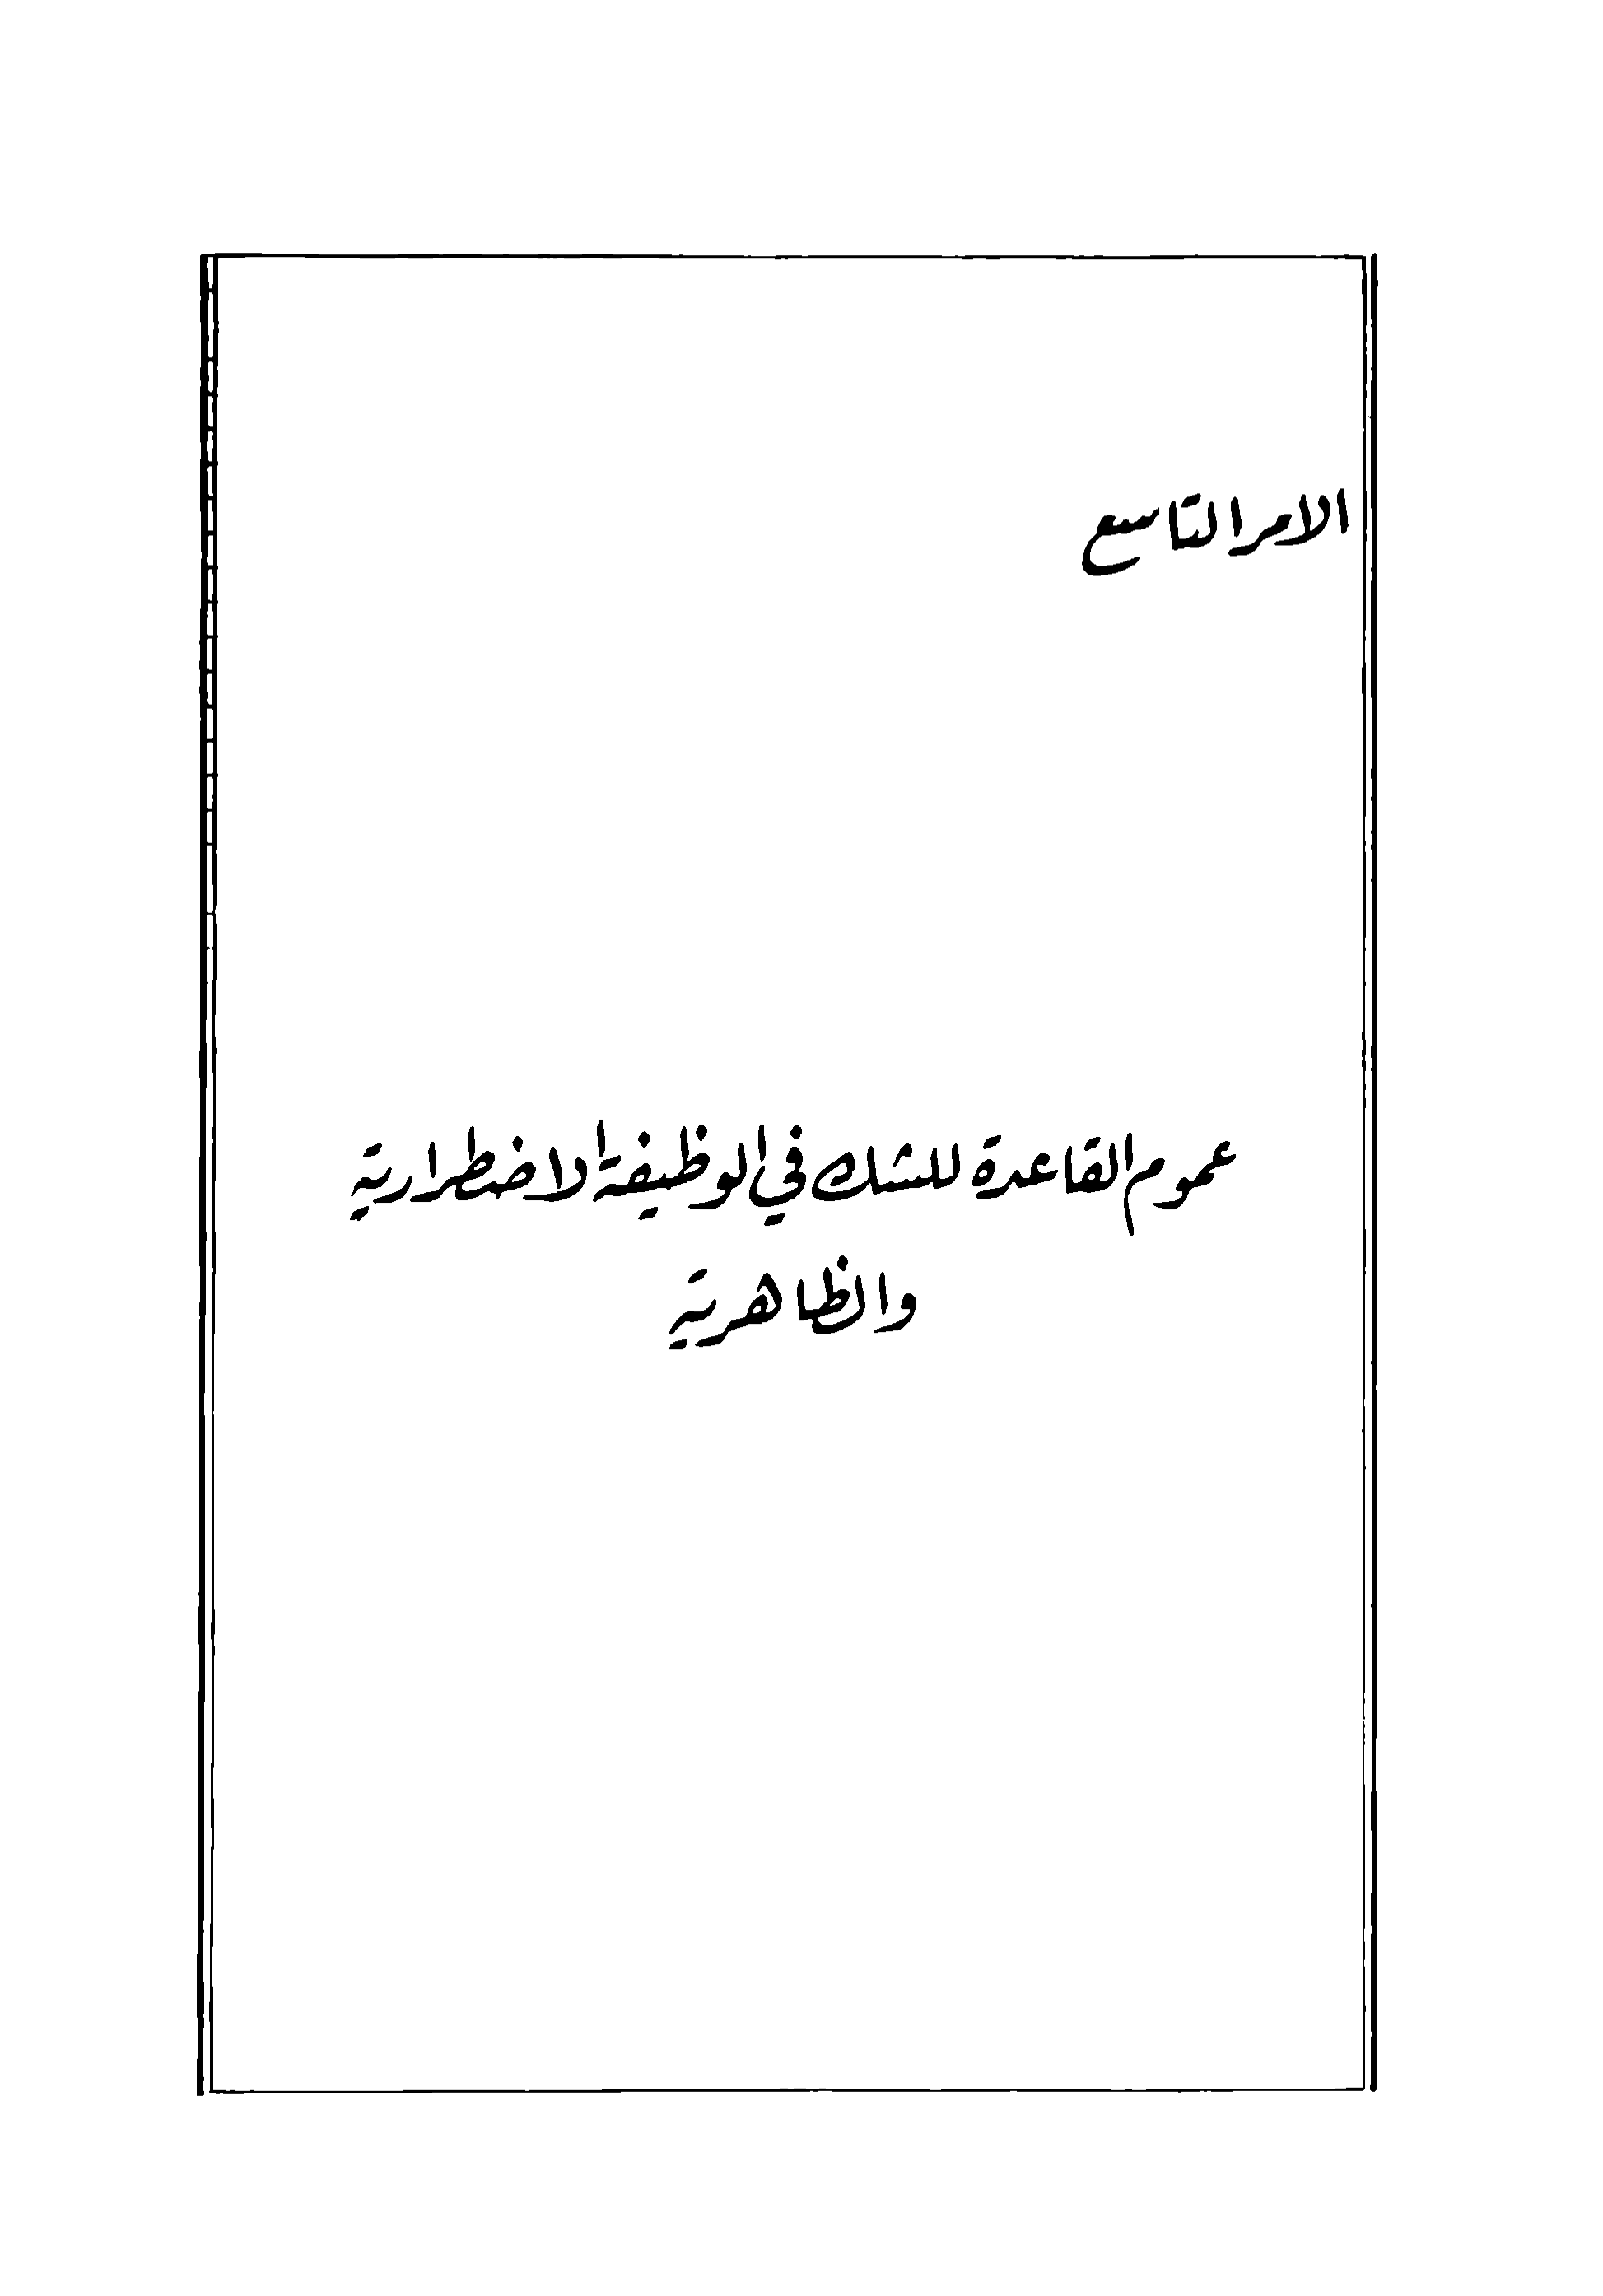 الامر التاسع
عموم القاعدة للشك في الوظيفة الاضطرارية
والظاهرية